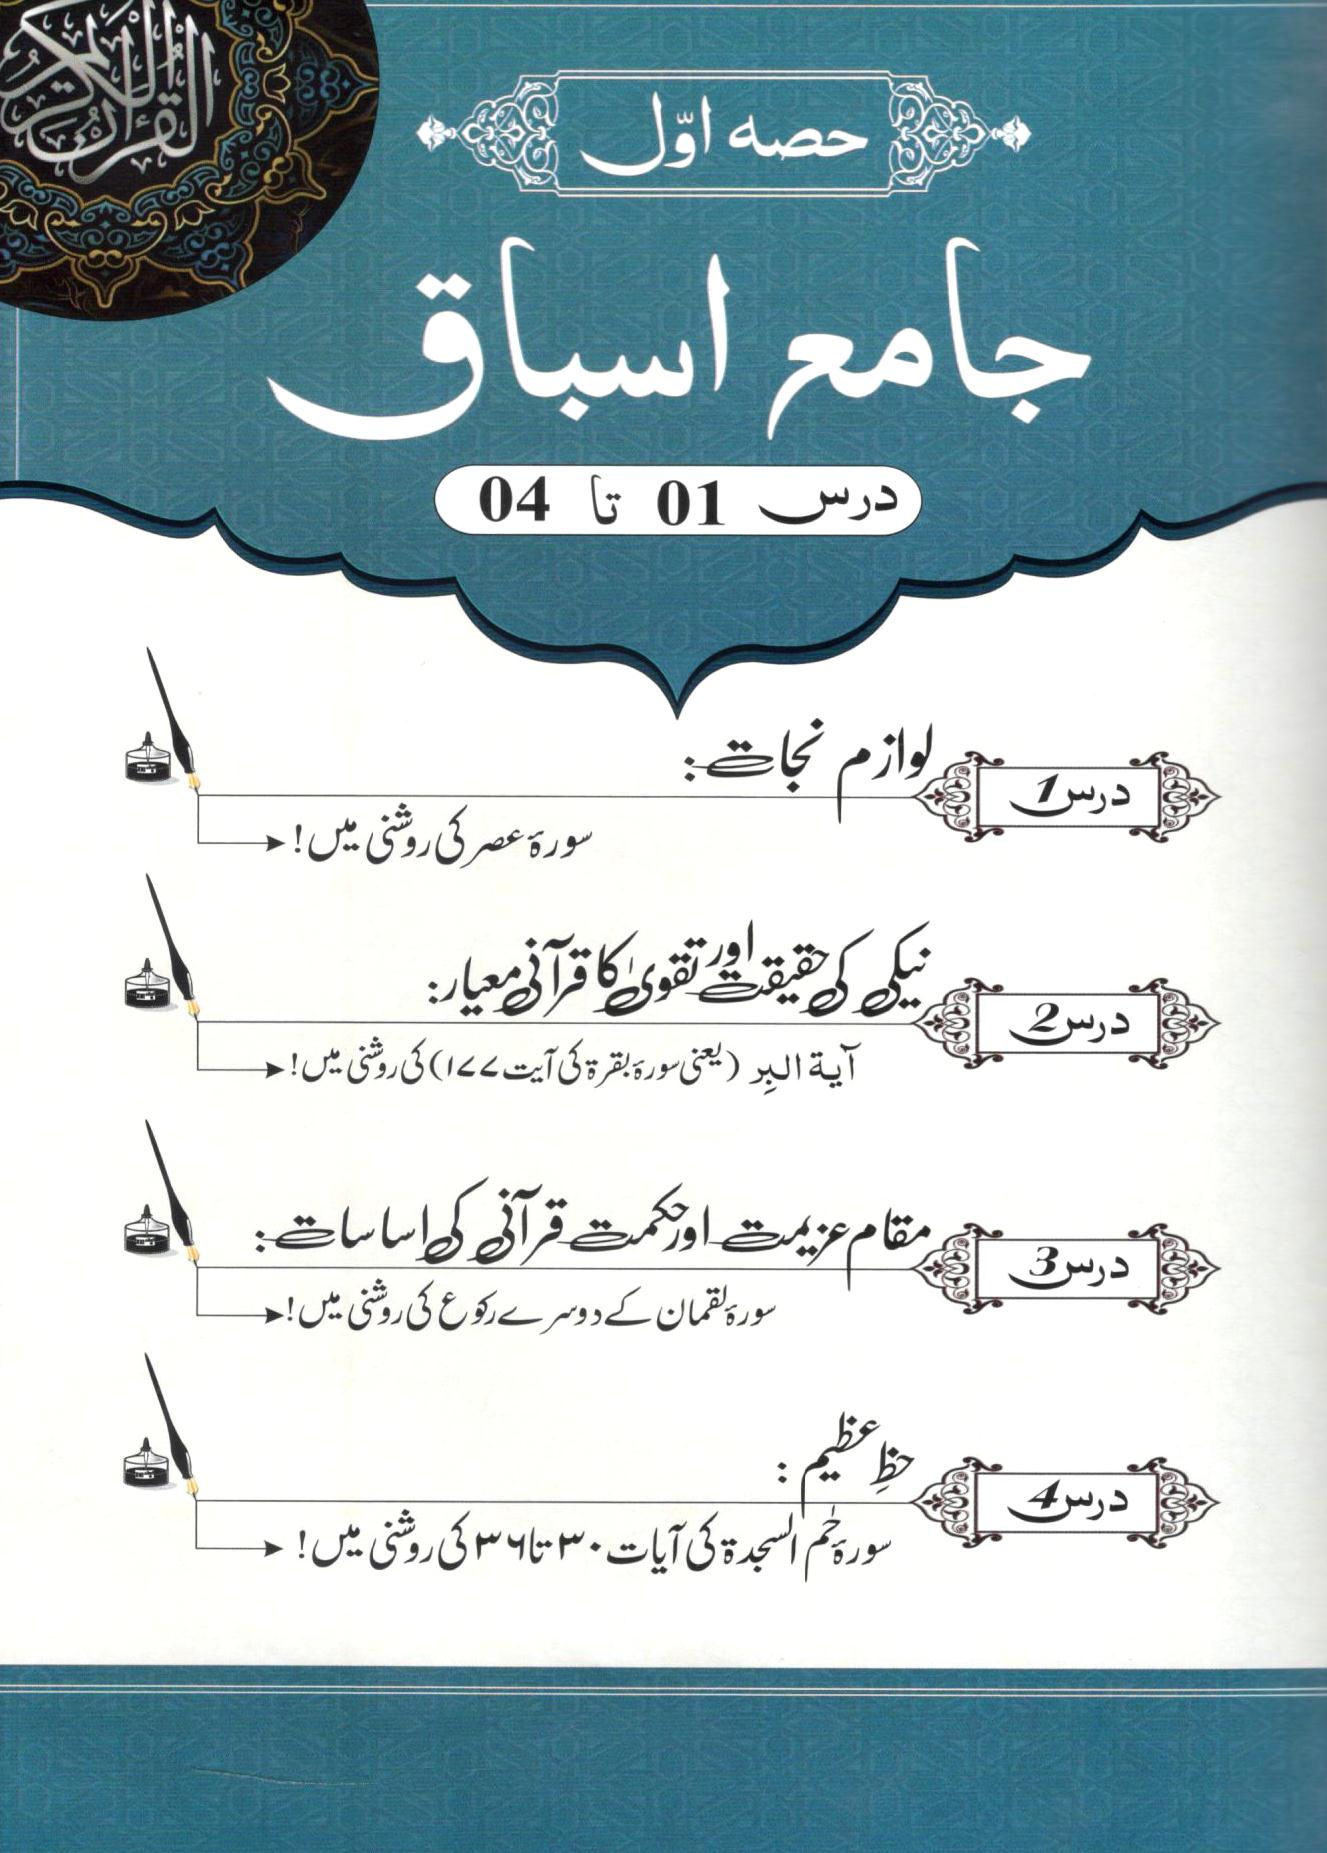 القرآن الكريم
حصہ اوّل
جامع اسباق
درس 01 تا 04
درس 1
لوازم نجات:
سورۂ عصر کی روشنی میں!
درس 2
نیکی کی حقیقت اور تقویٰ کا قرآنی معیار:
آیۃ البِر (یعنی سورۂ بقرۃ کی آیت ۱۷۷) کی روشنی میں!
درس 3
مقام عزیمت اور حکمت قرآنی کی اساسات:
سورۂ لقمان کے دوسرے رکوع کی روشنی میں!
درس 4
حظِ عظیم:
سورۂ حٰم السجدۃ کی آیات ۳۰ تا ۳۶ کی روشنی میں!